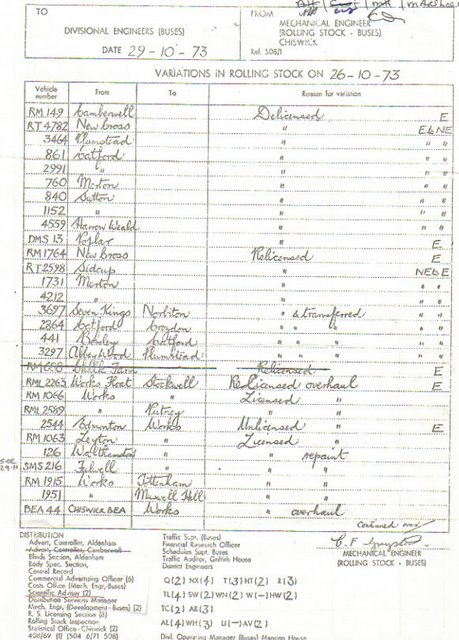 TO
DIVISIONAL ENGINEERS (BUSES)
DATE 29-10-73
FROM
MECHANICAL ENGINEER
(ROLLING STOCK - BUSES)
CHISWICK
Ref. 508/1
VARIATIONS IN ROLLING STOCK ON 26-10-73
Vehicle number From To Reason for variation
RM 149 Camberwell Delicensed E
RT 4782 New Cross " E & NE
3464 Plumstead " " "
861 Catford " " "
2991 " " " "
760 Merton " " "
840 Sutton " " "
1152 " " " "
4559 Harrow Weald " " "
DMS 13 Poplar " E
RM 1764 New Cross Relicensed E
RT 2598 Sidcup " NE & E
1731 Merton " " "
4212 " " " "
3697 Seven Kings Norbiton " & transferred " "
2864 Catford Croydon " " " "
441 Bromley Catford " " " "
3297 Abbey Wood Plumstead " " " "
RM Relicensed E
RML 2263 Works Float Stockwell Relicensed overhaul E
RM 1066 Works Licensed "
RML 2589 " Putney " "
2544 Edmonton Works Unlicensed " E
RM 1063 Leyton " Licensed "
126 Walthamstow " " repaint
SMS 216 Fulwell " " "
RM 1915 Works Tottenham " "
1951 " Muswell Hill " "
BEA 44 CHISWICK BEA Works " overhaul
Continued over
DISTRIBUTION
Advert, Controller, Aldenham
Advert, Controller, Camberwell
Blinds Section, Aldenham
Body Spec. Section,
Central Record
Commercial Advertising Officer (6)
Costs Office (Mech. Engr-Buses)
Scientific Adviser (2)
Distribution Services Manager
Mech. Engr, (Development - Buses) (2)
R. S. Licensing Section (8)
Rolling Stock Inspector
Statistical Office - Chiswick (2)
408/69 (1) (504 6/71 508)
Traffic Supt. (Buses)
Financial Research Officer
Schedules Supt. Buses
Traffic Auditor, Griffith House
District Engineers
Q(2) NX(4) T(3) HT(2) R(3)
TL(4) SW(2) WN(2) W(-) HW(2)
TC(2) AR(3)
AL(4) WH(3) U(-) AV(2)
Divl. Operating Manager (Buses) Mansion House
MECHANICAL ENGINEER
(ROLLING STOCK - BUSES)